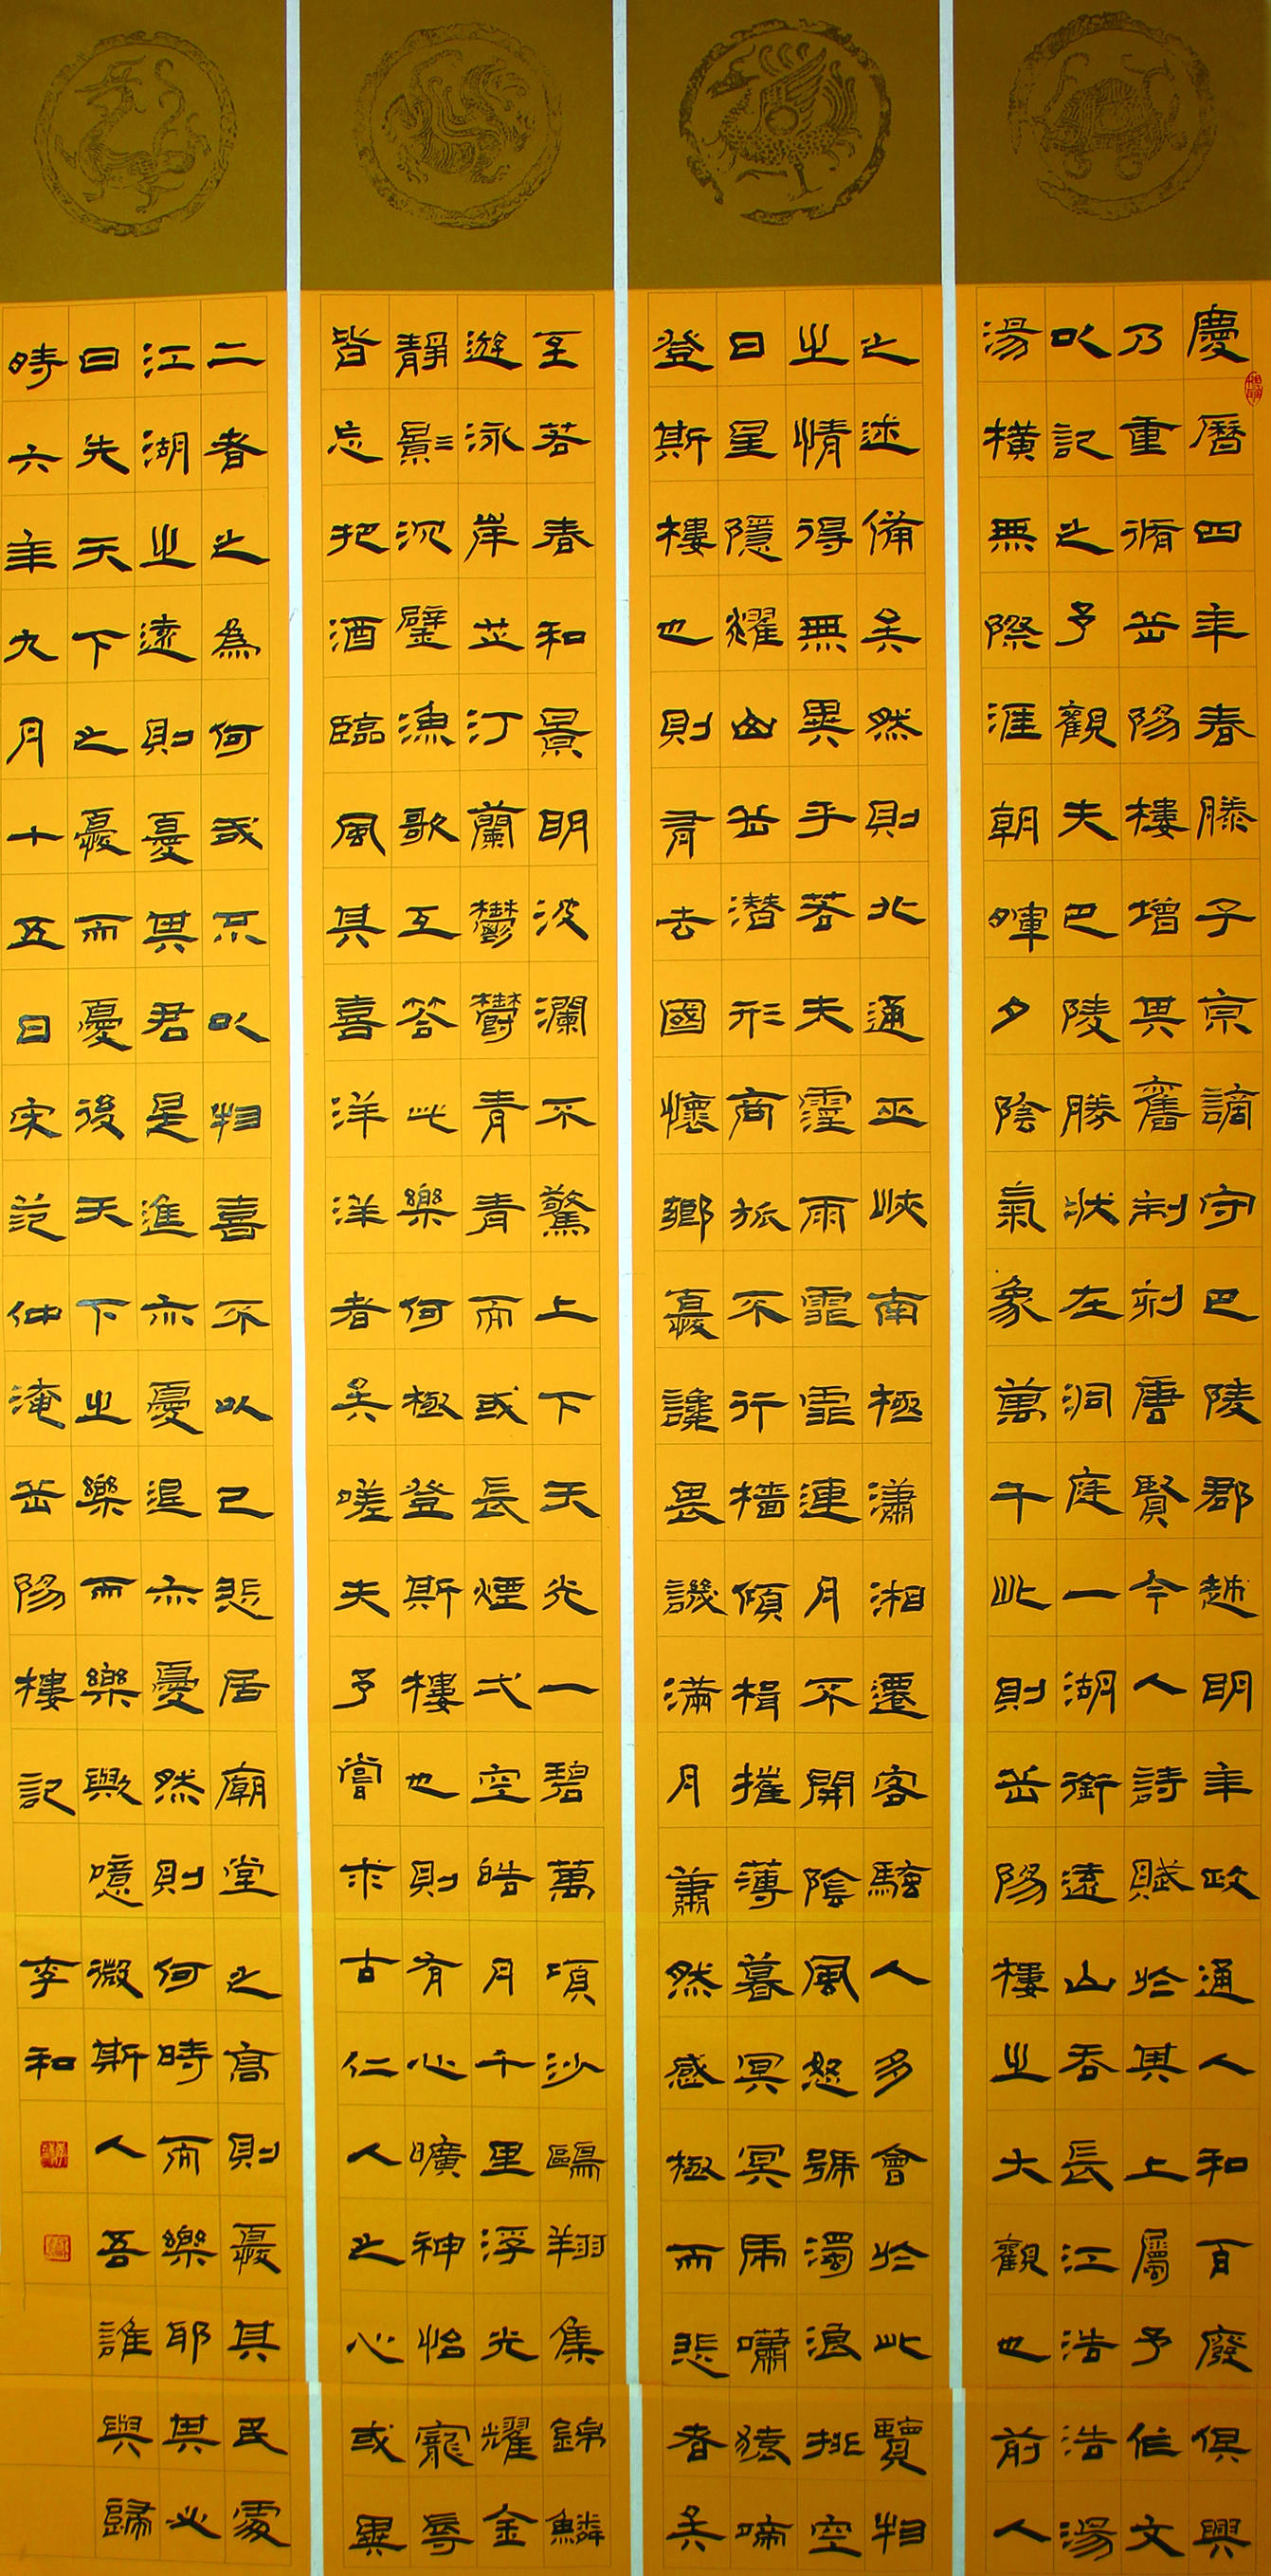 慶曆四年春滕子京謫守巴陵郡越明年政通人和百廢俱興
乃重脩岳陽樓增其舊制刻唐賢今人詩賦於其上屬予作文
以記之予觀夫巴陵勝狀左洞庭一湖銜遠山吞長江浩浩湯
湯橫無際涯朝暉夕陰氣象萬千此則岳陽樓之大觀也前人
之述備矣然則北通巫峽南極瀟湘遷客騷人多會於此覽物
之情得無異乎若夫霪雨霏霏連月不開陰風怒號濁浪排空
日星隱耀山岳潛形商旅不行檣傾楫摧薄暮冥冥虎嘯猿啼
登斯樓也則有去國懷鄉憂讒畏譏滿月蕭然感極而悲者矣
至若春和景明波瀾不驚上下天光一碧萬頃沙鷗翔集錦鱗
遊泳岸芷汀蘭鬱鬱青青而或長煙弌空皓月千里浮光耀金
靜影沉璧漁歌互答此樂何極登斯樓也則有心曠神怡寵辱
皆忘把酒臨風其喜洋洋者矣嗟夫予嘗求古仁人之心或異
二者之為何哉不以物喜不以己悲居廟堂之高則憂其民處
江湖之遠則憂其君是進亦憂退亦憂然則何時而樂耶其必
曰先天下之憂而憂後天下之樂而樂歟噫微斯人吾誰與歸
時六年九月十五日宋范仲淹岳陽樓記 李和